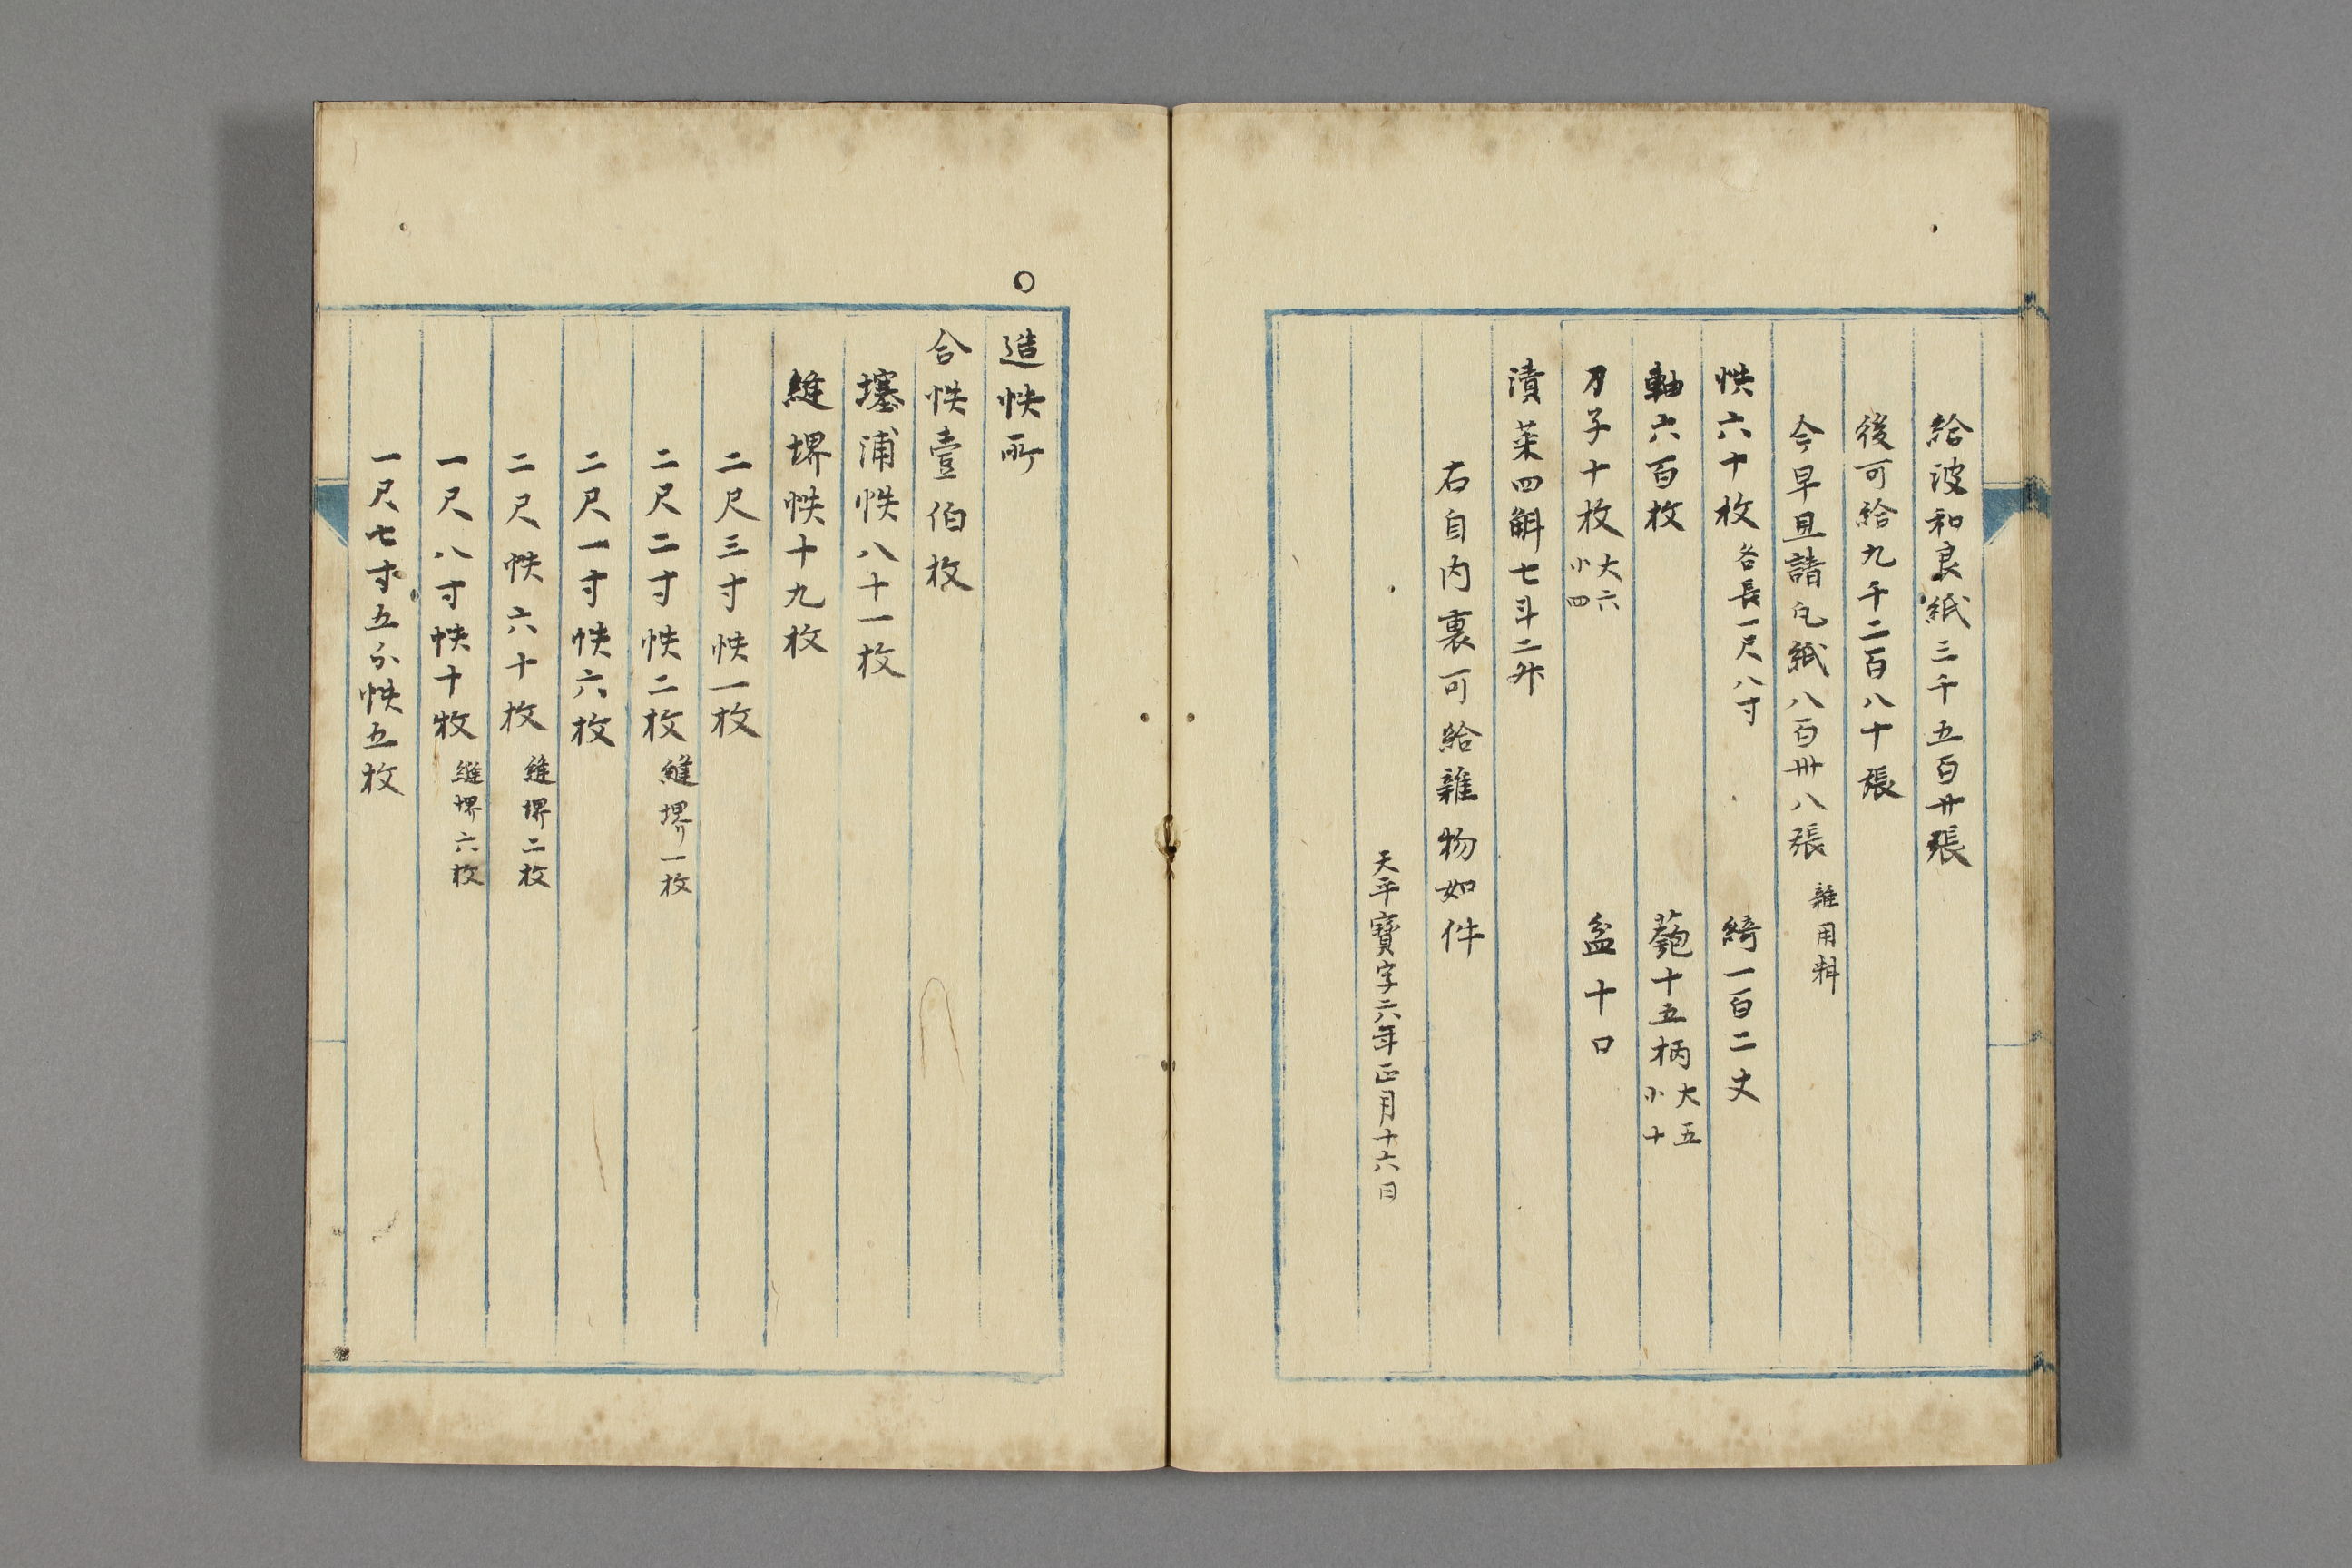 給波和良紙三千五百廿張
後可給九千二百八十張
今早且請凡紙八百卌八張 雜用料
帙六十枚 各長一尺八寸 綺一百二丈
軸六百枚 匏十五柄 大五 小十
刀子十枚 大六 小四 盆十口
漬菜四斛七斗二升
右自内裏可給雜物如件
天平寶字六年正月十六日
○
造帙所
合帙壹伯枚
塞浦帙八十一枚
縫堺帙十九枚
二尺三寸帙一枚
二尺二寸帙二枚 縫堺一枚
二尺一寸帙六枚
二尺帙六十枚 縫堺二枚
一尺八寸帙十枚 縫堺六枚
一尺七寸五分帙五枚